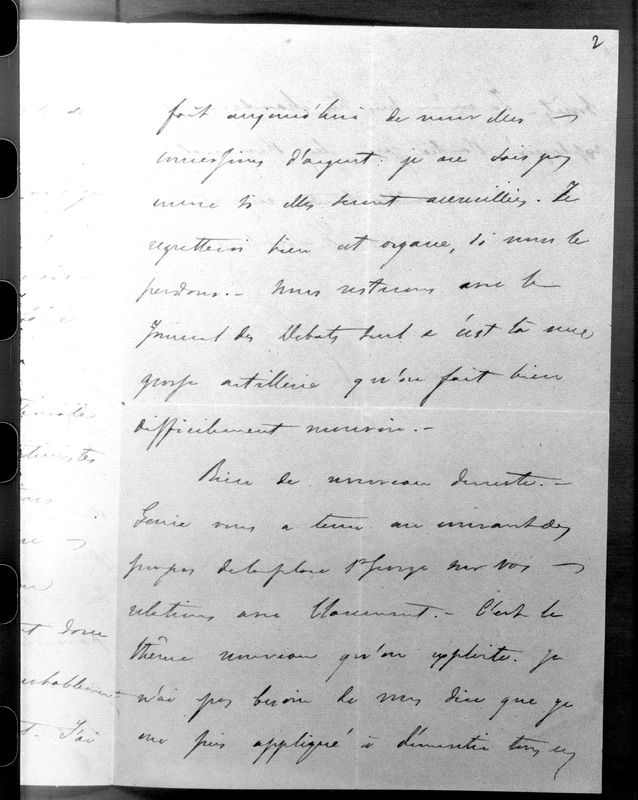 2
fait aujourd'hui de nouvelles
concessions d'argent. je ne sais pas
même si elles seront accueillies. Je
regretterais bien cet organe, si nous le
perdons. - Nous resterions avec le
Journal des Débats seul & c'est là une
grosse artillerie qu'on fait bien
difficilement mouvoir. -
Rien de nouveau du reste. -
Génie vous a tenu au courant des
propos de la place St George sur vos
relations avec Claremont. - C'est le
thème nouveau qu'on exploite. Je
n'ai pas besoin de vous dire que je
me suis appliqué à démentir tous ces
donc
probablement
t. J'ai